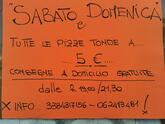 "SABATO e DOMENICA"
TUTTE LE PIZZE TONDE A...
5 €....
CONSEGNE A DOMICILIO GRATUITE
dalle 19,00/21,30
X INFO.... 3384131136 - 062413461!